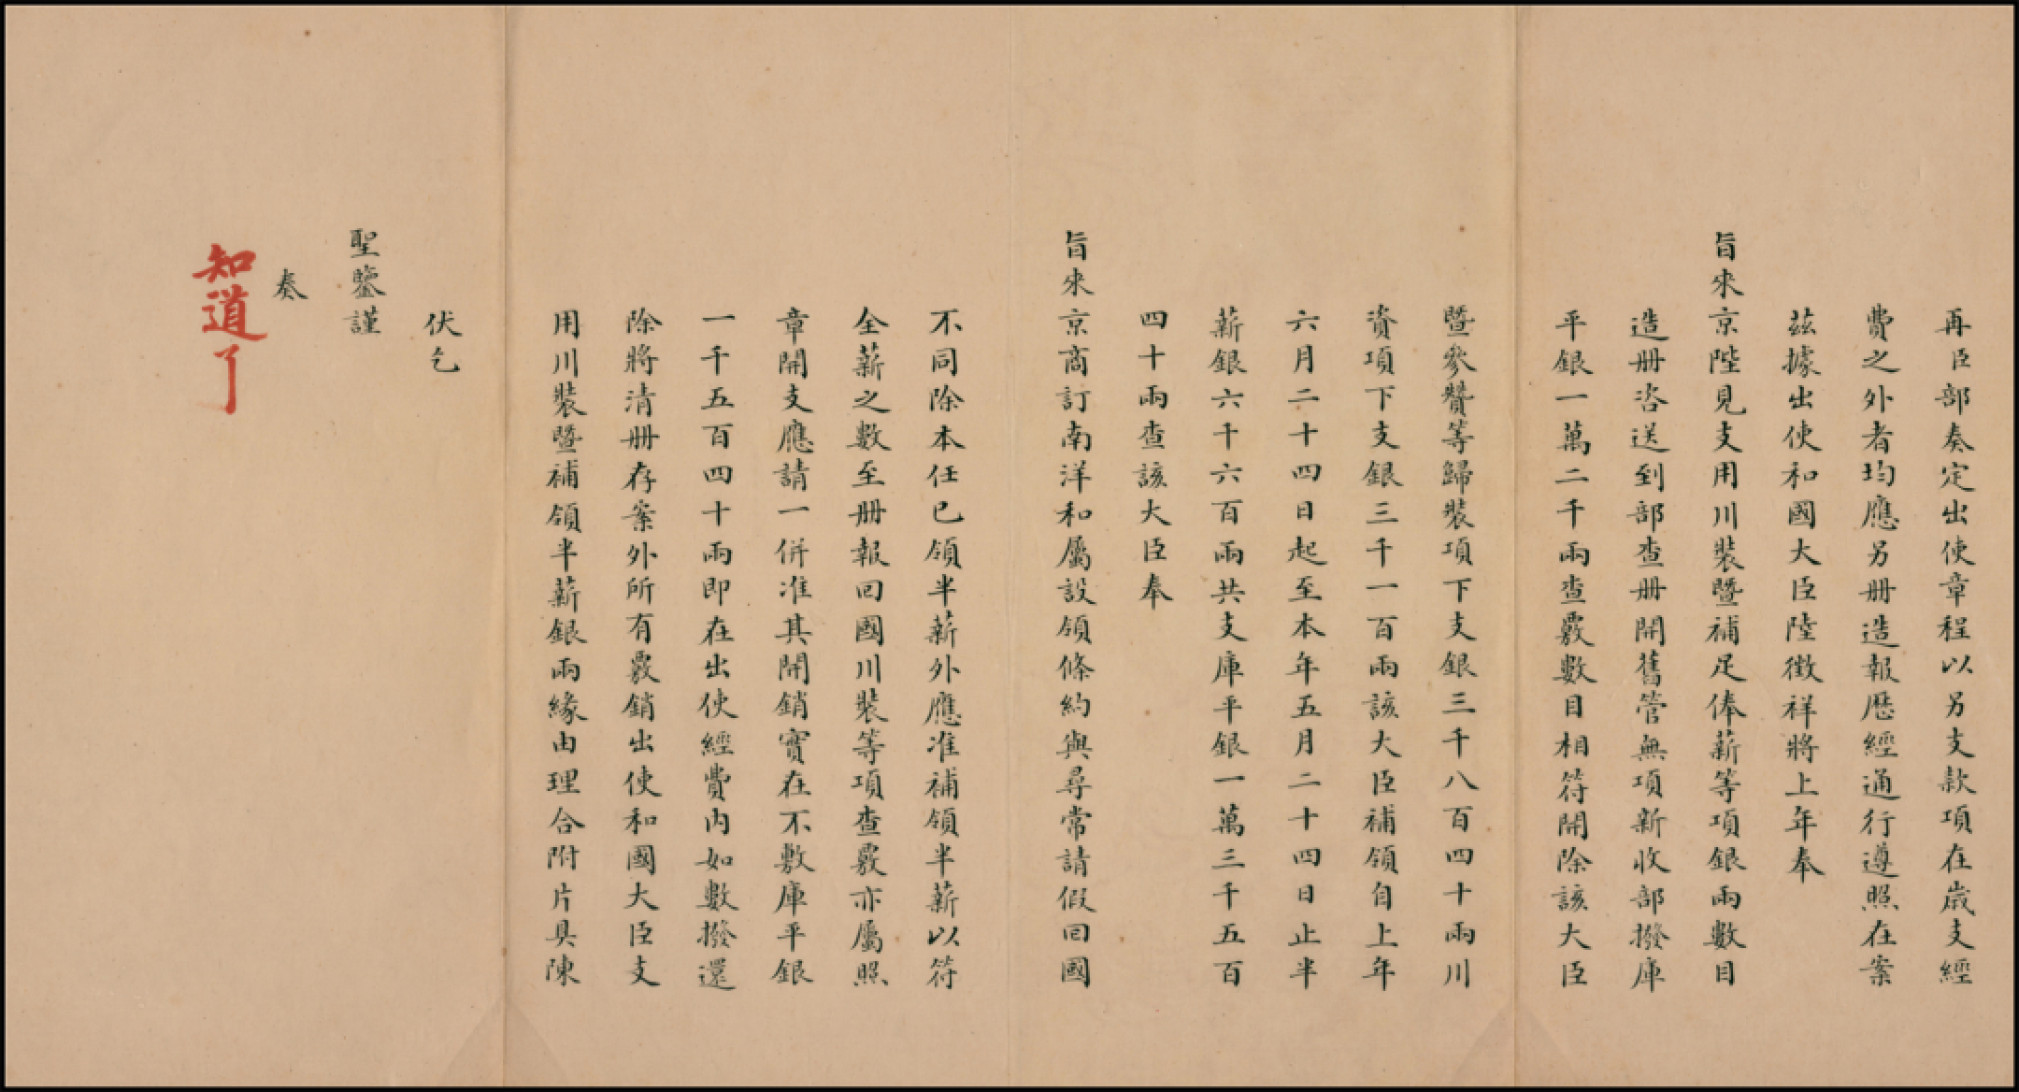 再臣部奏定出使章程以另支款項在歲支經
費之外者均應另册造報歷經通行遵照在案
茲據出使和國大臣陸徵祥將上年奉
旨來京陛見支用川裝暨補足俸薪等項銀兩數目
造册咨送到部查册開舊管無項新收部撥庫
平銀一萬二千兩查覈數目相符開除該大臣
暨參贊等歸裝項下支銀三千八百四十兩川
資項下支銀三千一百兩該大臣補領自上年
六月二十四日起至本年五月二十四日止半
薪銀六千六百兩共支庫平銀一萬三千五百
四十兩查該大臣奉
旨來京商訂南洋和屬設領條約與尋常請假回國
不同除本任已領半薪外應准補領半薪以符
全薪之數至册報回國川裝等項查覈亦屬照
章開支應請一併准其開銷實在不敷庫平銀
一千五百四十兩即在出使經費內如數撥還
除將清册存案外所有覈銷出使和國大臣支
用川裝暨補領半薪銀兩緣由理合附片具陳
伏乞
聖鑒謹
奏
知道了